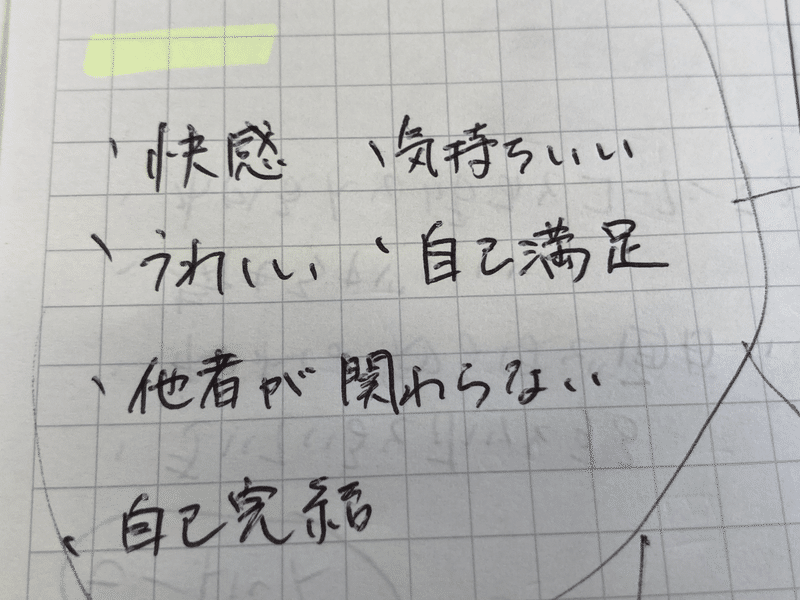 、快感 、気持ちいい
、うれしい 、自己満足
、他者が関わらない
、自己完結